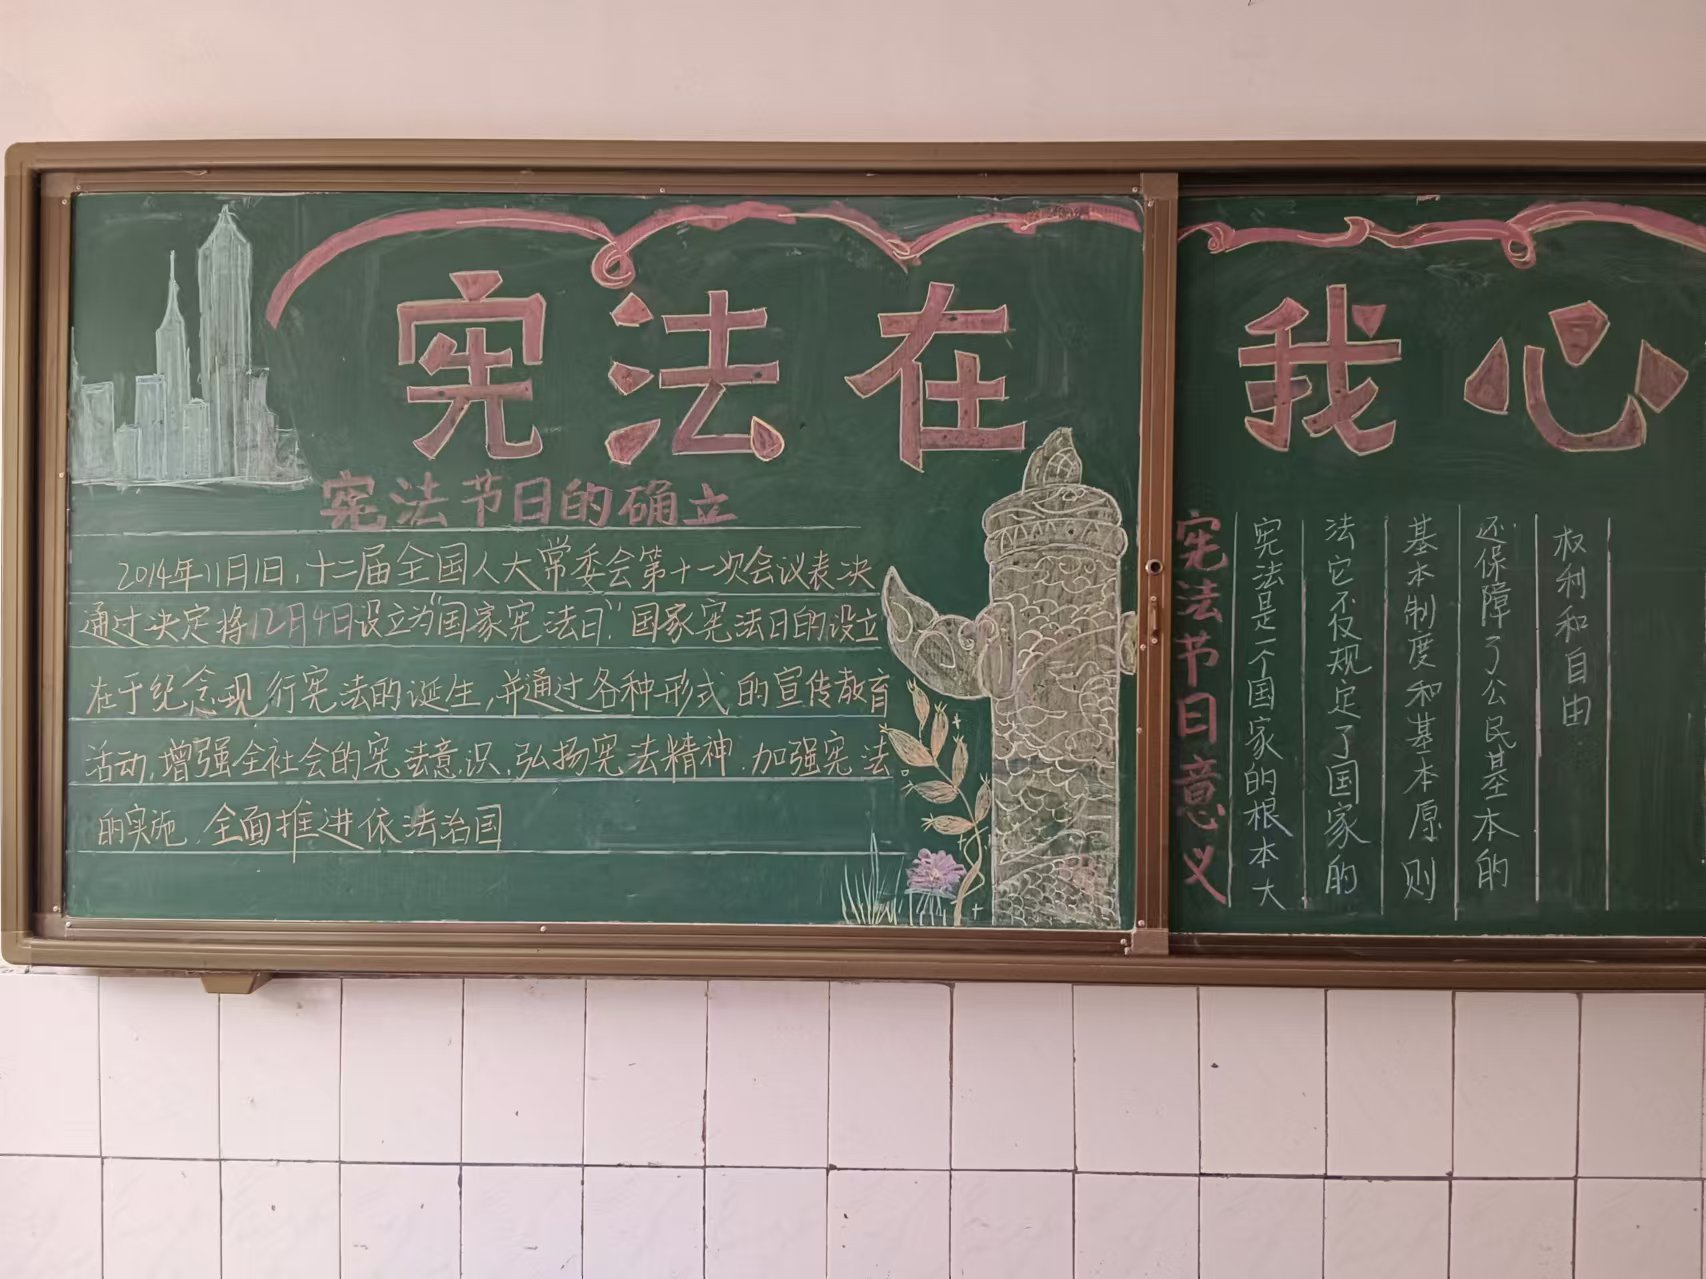 宪法在我心
宪法节日的确立
2014年11月1日,十二届全国人大常委会第十一次会议表决
通过决定将12月4日设立为"国家宪法日".国家宪法日的设立
在于纪念现行宪法的诞生,并通过各种形式的宣传教育
活动,增强全社会的宪法意识,弘扬宪法精神.加强宪法
的实施.全面推进依法治国
宪法节日意义
宪法是一个国家的根本大
法它不仅规定了国家的
基本制度和基本原则
还保障了公民基本的
权利和自由